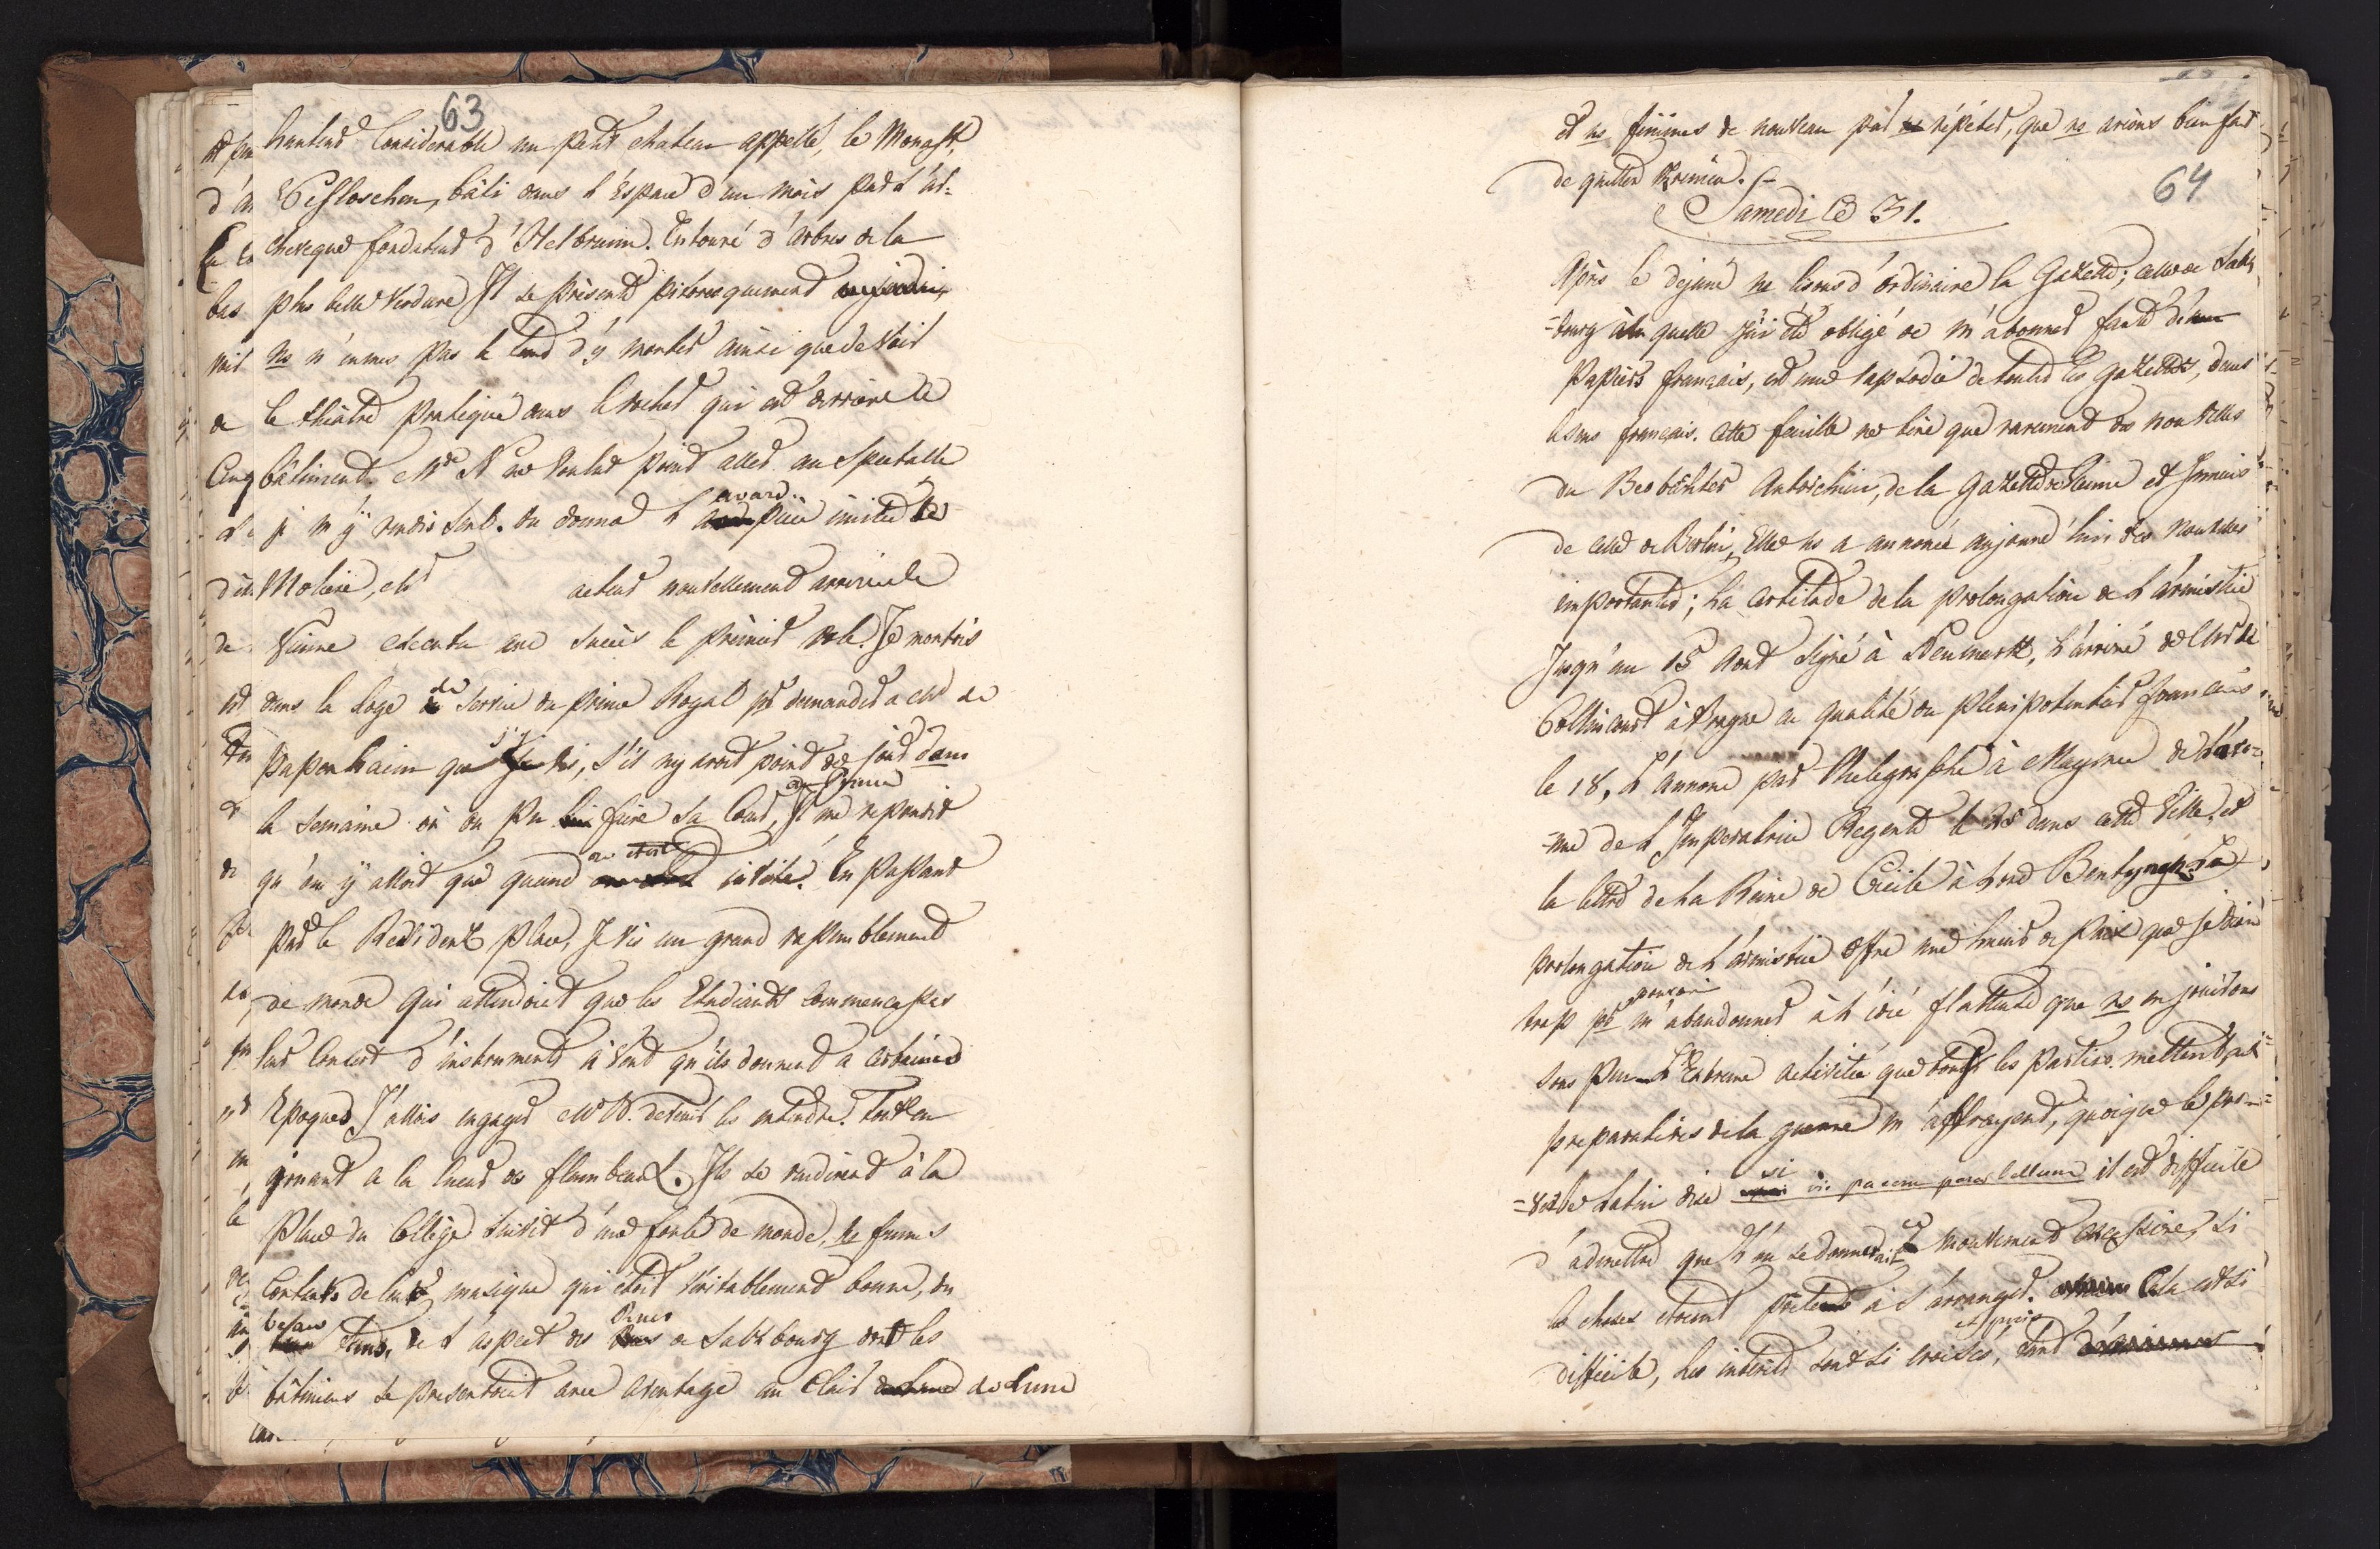 63
hauteur Considerable un petit chateau appellé, le Monaste,
Schloschen, bâti dans l'Espace d'un mois par l'ar=
cheveque fondateur d'Helbrunn. Entouré d'arbres de la
plus belle Verdure Il se présente pittoresquement
ns n'eumes pas le tems d'y monter ainsi que de voir
le théâtre pratiqué dans le rocher qui est derrière le
bâtiment. Mde N ne voulut point aller au Spectacle
je m'y rendis seul. on donna l'avare pièce imitée de
Molière, Mr acteur nouvellement arrivé de
Vienne executa avec succès le premier role. Je montois
dans la loge de service du prince Royal pr demander a Mr de
Papenhaim que j'y vis, s'il ny avoit point de jour dans
la semaine où on pu faire sa Cour au Prince, Il me repondit
qu'on y alloit que quand on etoit invité. En passant
par le Residentz place, Je vis un grand rassemblement
de monde qui attendoit que les Etudiants commencasses
leur Concert d'instruments à Vent qu'ils donnent a certaines
Epoques J'allois engager Mr N. de venir les entendre. Tout en
jouant a la lueur de flambeaux. Ils se rendirent à la
Place du Collège suivit d'une foule de monde, ns fumes
Contents de leur musique qui étoit véritablement bonne, du
beau tems, de l'aspect des Rues de Saltzbourg dont les
bâtimens se presentoient avec avantage au Clair de Lune
et ns finimes de nouveau par répéter, que ns avions bien fait
de quitter Kremin.
64
Samedi le 31.
Après le dejuné ns lisons d'ordinaire la Gazette; celle de Saltz
=bourg à la quelle j'ai été obligé de m'abonner faute de
Papiers français, est une rapsodie de toutes les gazettes, dans
le sens français. Cette feuille ne tire que rarement des nouvelles
du Beobachter Autrichien, de la Gazette de Vienne et Jamais
de celle de Berlin, Elle ns a annoncé aujourd'hui des nouvelles
importantes; La certitude de la prolongation de l'armistice
Jusqu'au 15 Aout signé à Neumarkt, l'arrivé de Mr de
Collincourt à Prague en qualité de plenipotentier francais
le 18, l'annonce par Thelegraphe à Mayence de l'arri=
=vée de l'Imperatrice Regente le 25 dans cette Ville, et
la lettre de la Reine de Cicile à Lord Bentyngk. La
prolongation de l'armistice offre une lueur de paix que je desire
trop pr pouvoir m'abandonner à l'idée flatteuse que ns en jouirons
sous peu. L'Extreme activitée que touts les parties mettent aux
preparatives de la guerre m'affrayent, quoique le pro=
=verbe Latin dise si vis pacem para bellum il est difficile
d'admettre que l'on se donnerait ce mouvement excessive, si
les choses etoient pretes à s'arranger. Cela est si
difficile, les interets sont si croisés,